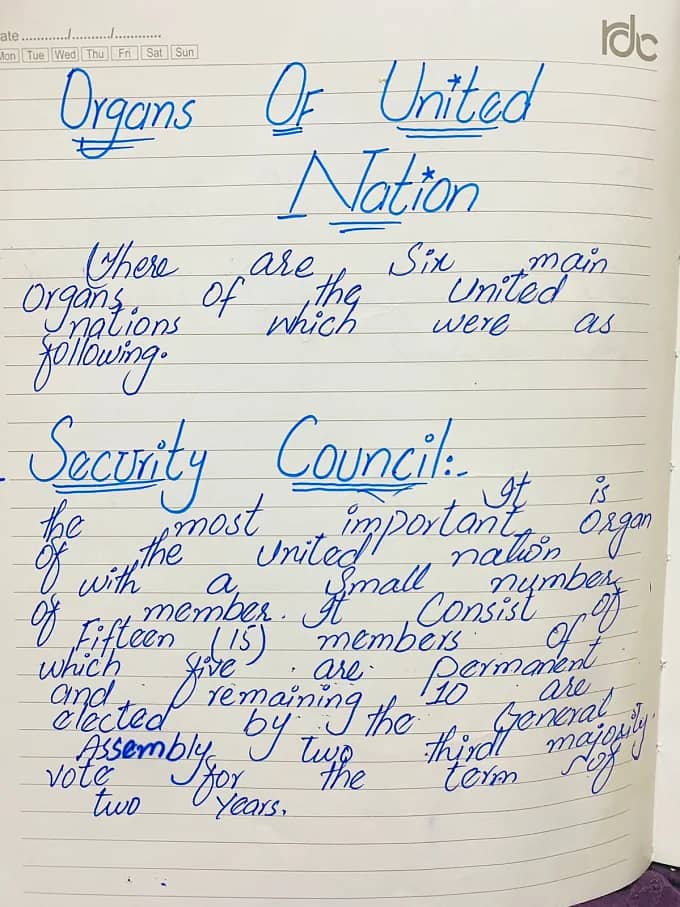 ate ............/............/............
Mon Tue Wed Thu Fri Sat Sun
rdc
Organs OF United
Nation
There are Six main
Organs of the United
nations which were as
following.
Security Council:-
It is
the most important Organ
of the United nation
with a Small number
of member. It Consist of
Fifteen (15) members of
which five are permanent
and remaining 10 are
elected by the General
Assembly two third majority
vote for the term of
two years.